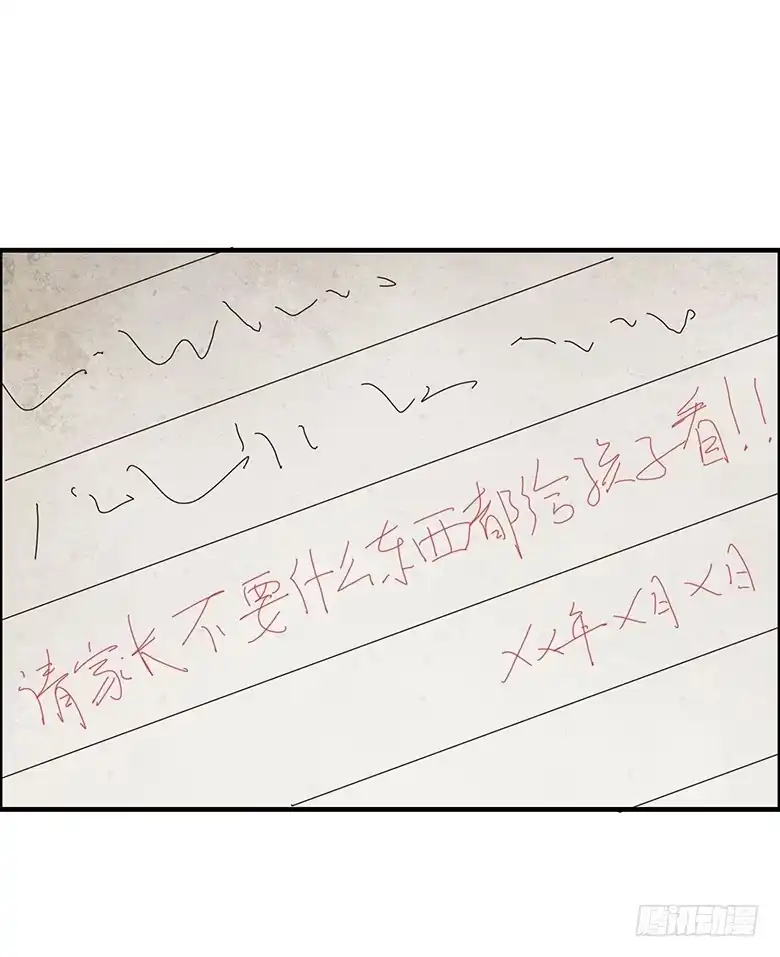 请家长不要什么东西都给孩子看!!
XX年X月X日
腾讯动漫